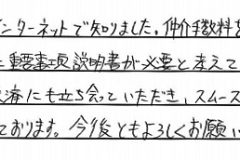 ンターネットで知りました。仲介手数料を
に重要事項説明書が必要と考えて
済にも立ち会っていただき、スムーズ
ております。今後ともよろしくお願い